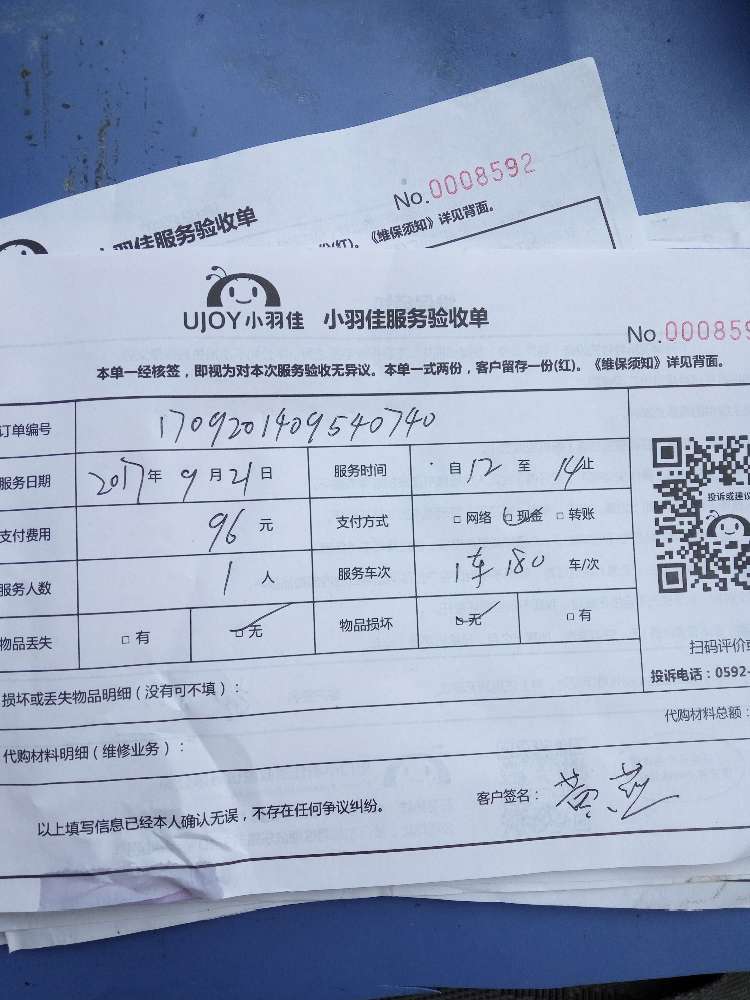 No.0008592
小羽佳服务验收单
(红)。《维保须知》详见背面。
UJOY小羽佳 小羽佳服务验收单
No.000859
本单一经核签，即视为对本次服务验收无异议。本单一式两份，客户留存一份(红)。《维保须知》详见背面。
订单编号 1709201409540740
服务日期 2017年9月21日 服务时间 自12至14止
支付费用 96元 支付方式 □网络 □现金 □转账
服务人数 1人 服务车次 1车180 车/次
物品丢失 □有 □无 物品损坏 □无 □有
投诉或建议
扫码评价或
投诉电话：0592-
损坏或丢失物品明细（没有可不填）：
代购材料总额：
代购材料明细（维修业务）：
以上填写信息已经本人确认无误，不存在任何争议纠纷。
客户签名：黄